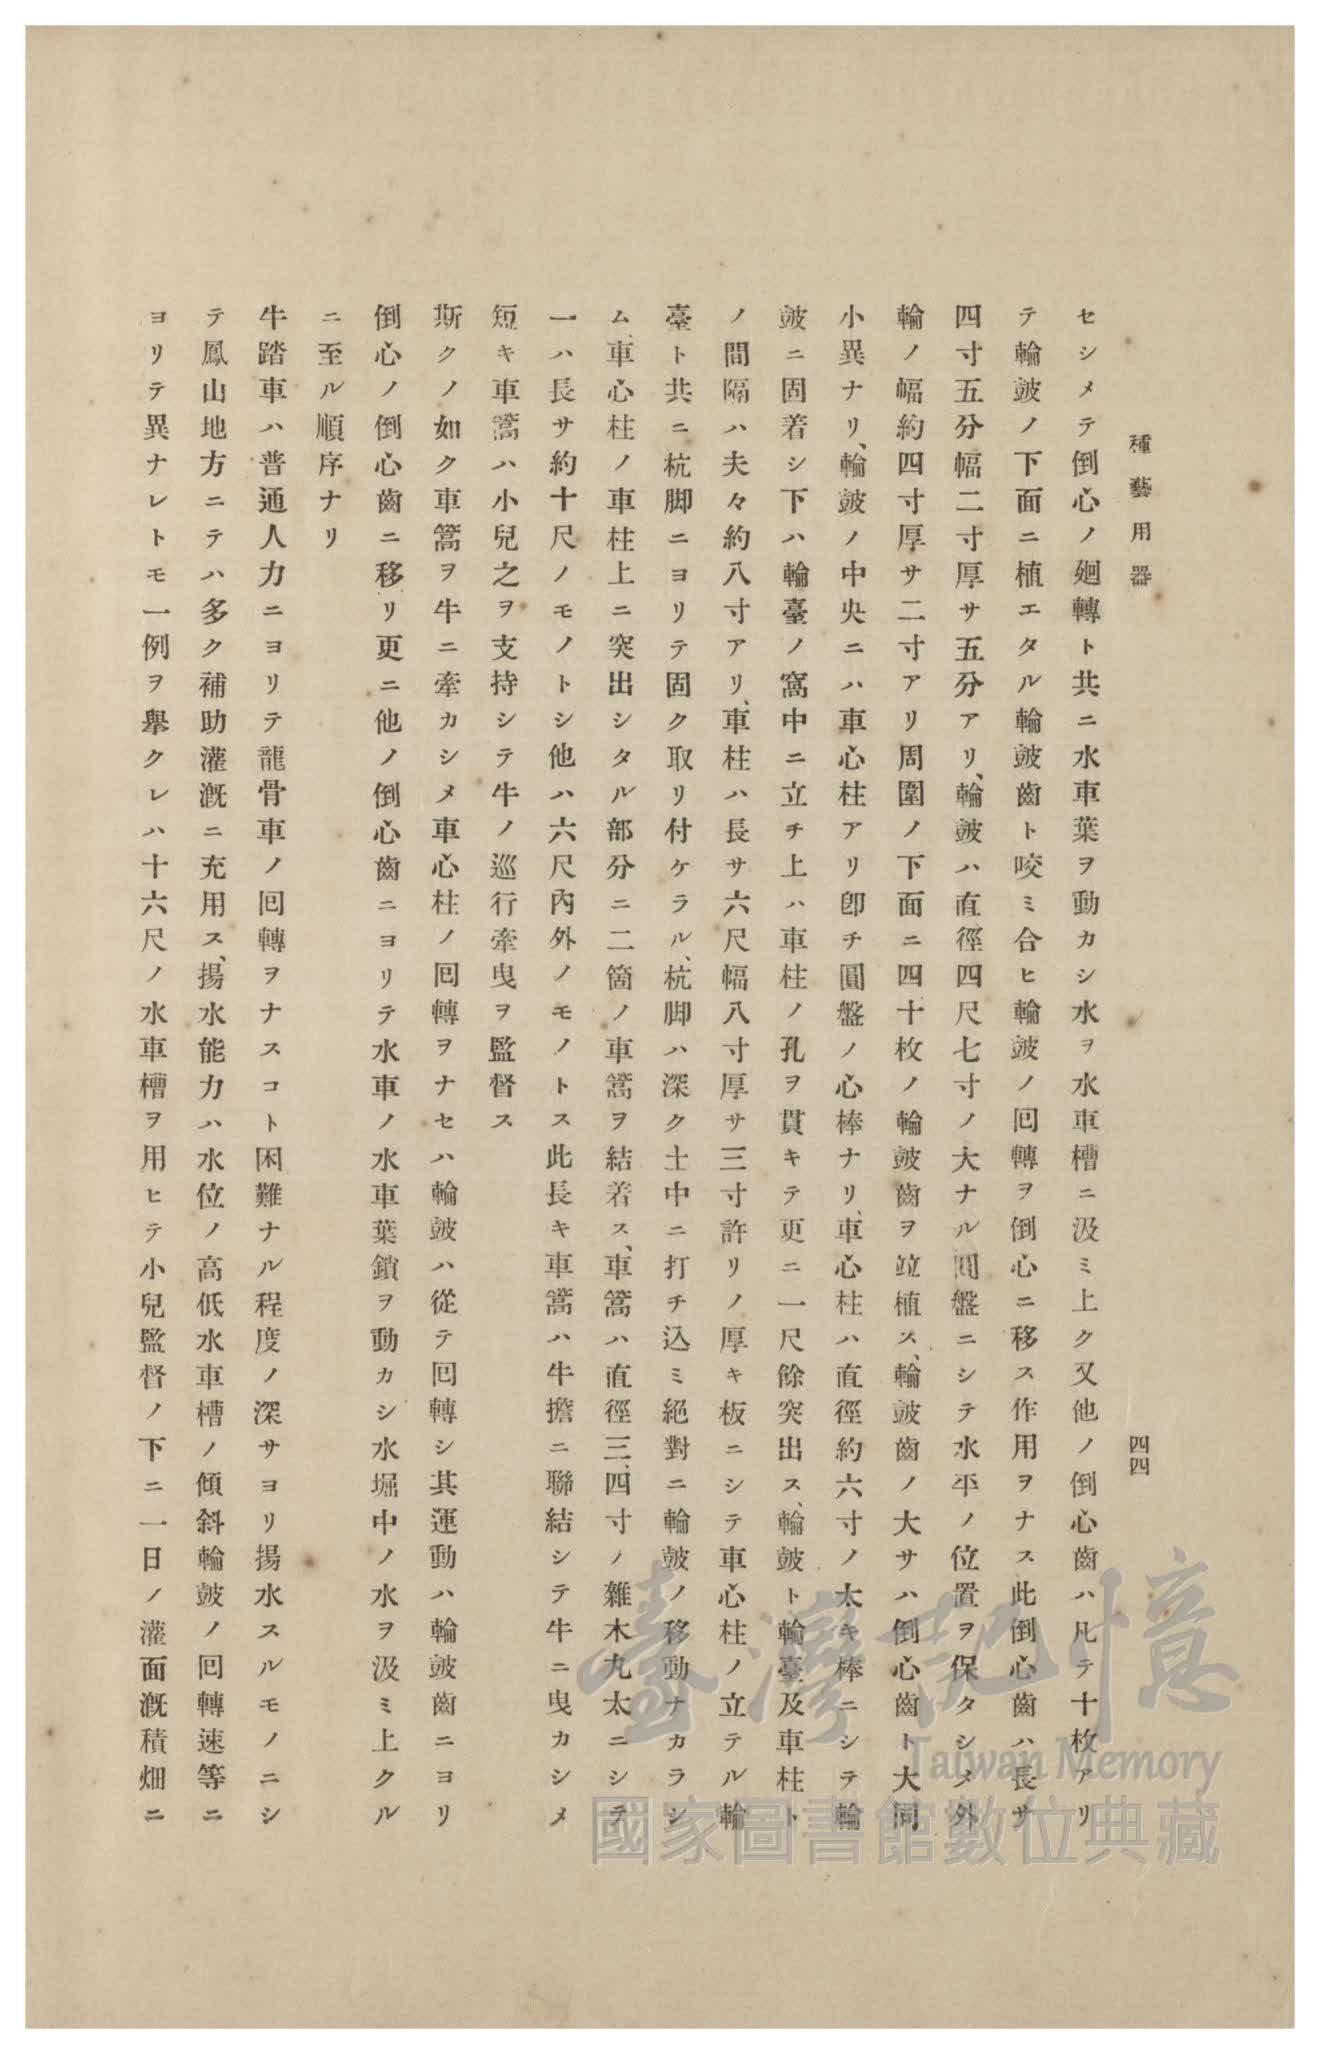 種藝用器
四四
セシメテ倒心ノ廻轉ト共ニ水車葉ヲ動カシ水ヲ水車槽ニ汲ミ上ク又他ノ倒心齒ハ凡テ十枚アリ
テ輪皷ノ下面ニ植エタル輪皷齒ト咬ミ合ヒ輪皷ノ囘轉ヲ倒心ニ移ス作用ヲナス此倒心齒ハ長サ
四寸五分幅二寸厚サ五分アリ、輪皷ハ直徑四尺七寸ノ大ナル圓盤ニシテ水平ノ位置ヲ保タシメ外
輪ノ幅約四寸厚サ二寸アリ周圍ノ下面ニ四十枚ノ輪皷齒ヲ竝植ス、輪皷齒ノ大サハ倒心齒ト大同
小異ナリ、輪皷ノ中央ニハ車心柱アリ卽チ圓盤ノ心棒ナリ、車心柱ハ直徑約六寸ノ太キ棒ニシテ輪
皷ニ固着シ下ハ輪臺ノ窩中ニ立チ上ハ車柱ノ孔ヲ貫キテ更ニ一尺餘突出ス、輪皷ト輪臺及車柱ト
ノ間隔ハ夫々約八寸アリ、車柱ハ長サ六尺幅八寸厚サ三寸許リノ厚キ板ニシテ車心柱ノ立テル輪
臺ト共ニ杭脚ニヨリテ固ク取リ付ケラル、杭脚ハ深ク土中ニ打チ込ミ絕對ニ輪皷ノ移動ナカラシ
ム、車心柱ノ車柱上ニ突出シタル部分ニ二箇ノ車篙ヲ結着ス、車篙ハ直徑三、四寸ノ雜木丸太ニシテ
一ハ長サ約十尺ノモノトシ他ハ六尺內外ノモノトス此長キ車篙ハ牛擔ニ聯結シテ牛ニ曳カシメ
短キ車篙ハ小兒之ヲ支持シテ牛ノ巡行牽曳ヲ監督ス
斯クノ如ク車篙ヲ牛ニ牽カシメ車心柱ノ囘轉ヲナセハ輪皷ハ從テ囘轉シ其運動ハ輪皷齒ニヨリ
倒心ノ倒心齒ニ移リ更ニ他ノ倒心齒ニヨリテ水車ノ水車葉鎖ヲ動カシ水堀中ノ水ヲ汲ミ上クル
ニ至ル順序ナリ
牛踏車ハ普通人力ニヨリテ龍骨車ノ囘轉ヲナスコト困難ナル程度ノ深サヨリ揚水スルモノニシ
テ鳳山地方ニテハ多ク補助灌漑ニ充用ス、揚水能力ハ水位ノ高低水車槽ノ傾斜輪皷ノ囘轉速等ニ
ヨリテ異ナレトモ一例ヲ擧クレハ十六尺ノ水車槽ヲ用ヒテ小兒監督ノ下ニ一日ノ灌面漑積畑ニ
臺灣記憶
Taiwan Memory
國家圖書館數位典藏